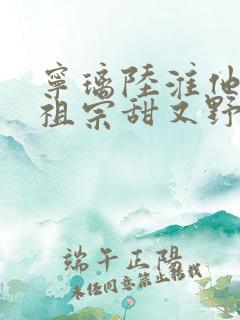 寧璃陸淮他
祖宗甜又野
端午正陽
未经同意禁止转载